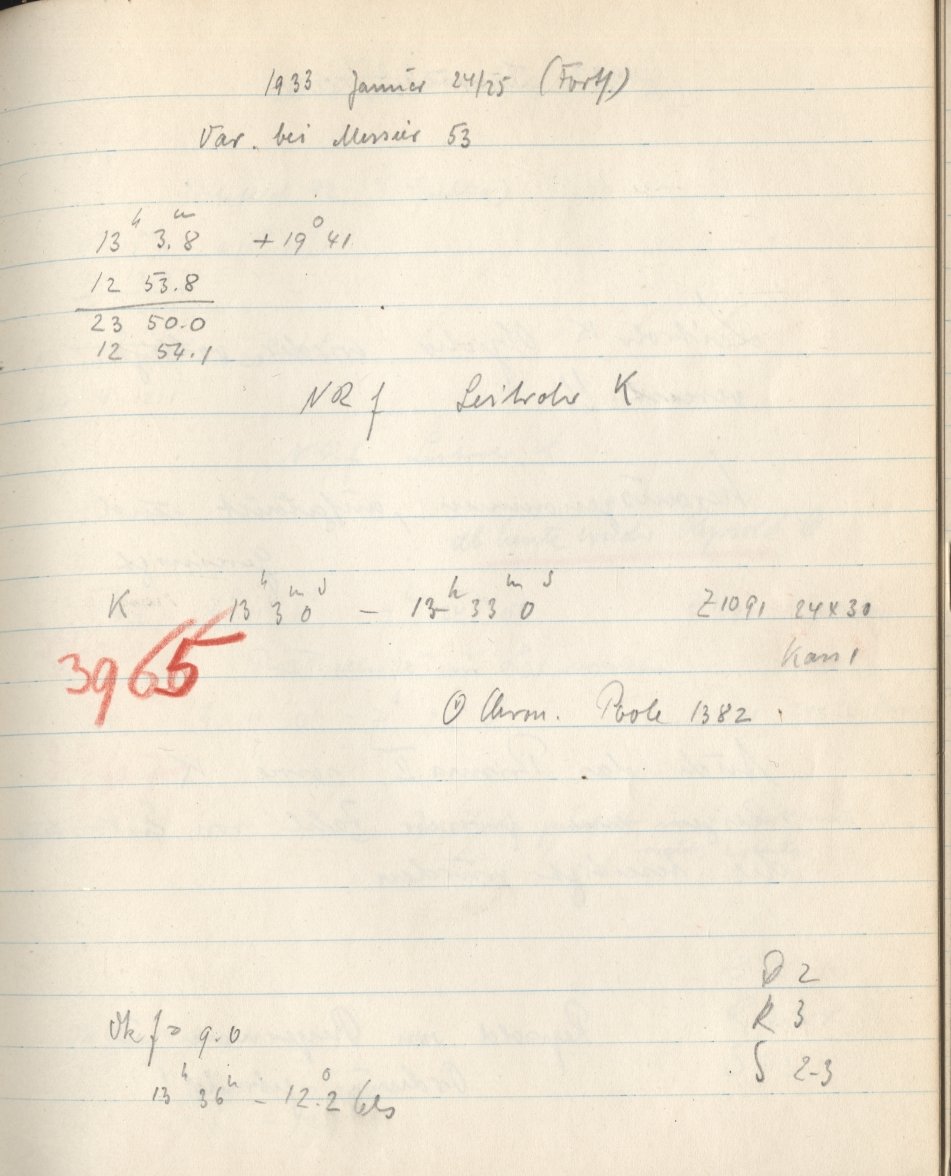 1933 Januar 24/25 (Forts.)
Var. bei Messier 53
13ʰ 3.8ᵐ +19°41
12 53.8
23 50.0
12 54.1
NR f Leitrohr K
K 13ʰ 3ᵐ 0ˢ – 13ʰ 33ᵐ 0ˢ Z1091 24x30
3965 Kass 1
Chron. Poole 1382
Ok f = 9.0
13ʰ 36ᵐ - 12.°2 Cels
D 2
R 3
S 2-3